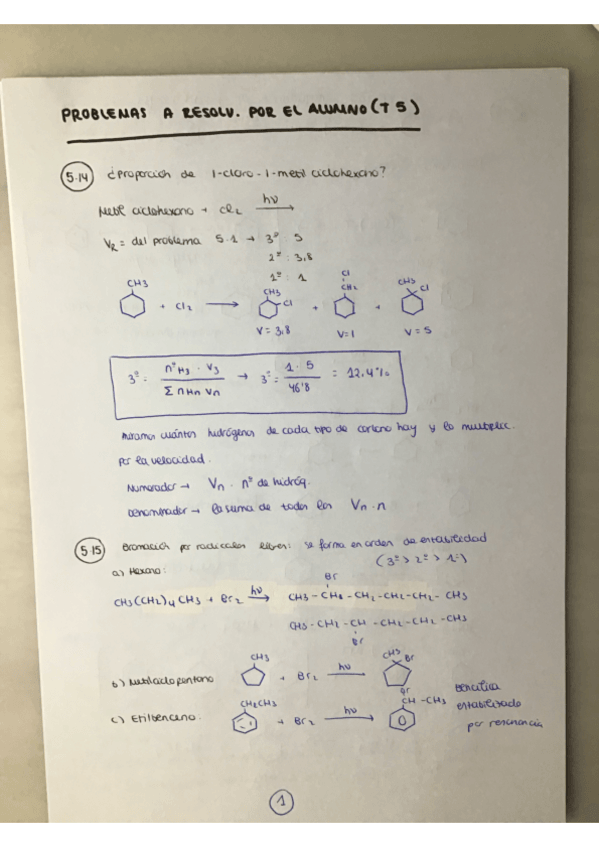 PROBLEMAS A RESOLV. POR EL ALUMNO (T5)
5.14 ¿Proporción de 1-cloro-1-metil ciclohexano?
Metil ciclohexano + Cl2 hν →
VR = del problema 5.1 → 3º 5
2º : 3,8
1º : 1
CH3 + Cl2 → CH3 Cl + Cl CH2 + CH3 Cl
V = 3,8 V=1 V = 5
3º = nºH3 · V3 / Σ nHn Vn → 3º = 1 · 5 / 46'8 = 12,4%
miramos cuántos hidrógenos de cada tipo de carbono hay y lo multiplic.
por la velocidad.
Numerador → Vn · nº de hidróg.
Denominador → la suma de todos los Vn · n
5.15 Bromación por radicales libres: se forma en orden de estabilidad
(3º > 2º > 1º)
a) Hexano:
Br
CH3(CH2)4CH3 + Br2 hν → CH3 - CH2 - CH2 - CH2 - CH2 - CH3
CH3 - CH2 - CH - CH2 - CH2 - CH3
Br
b) Metilciclopentano CH3 + Br2 hν → CH3 Br
c) Etilbenceno: CH2CH3 + Br2 hν → Br CH - CH3
bencílico
estabilizado
por resonancia
1